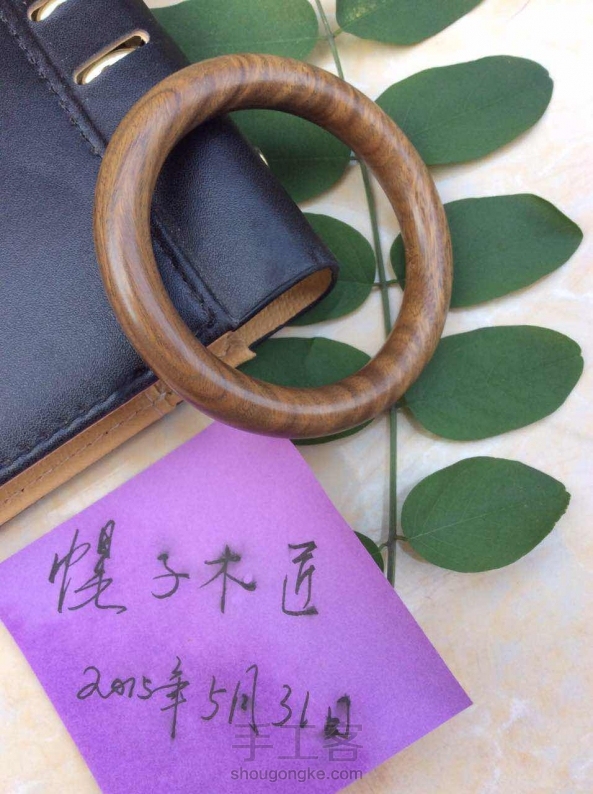 幌子木匠
2015年5月31日
手工客
shougongke.com